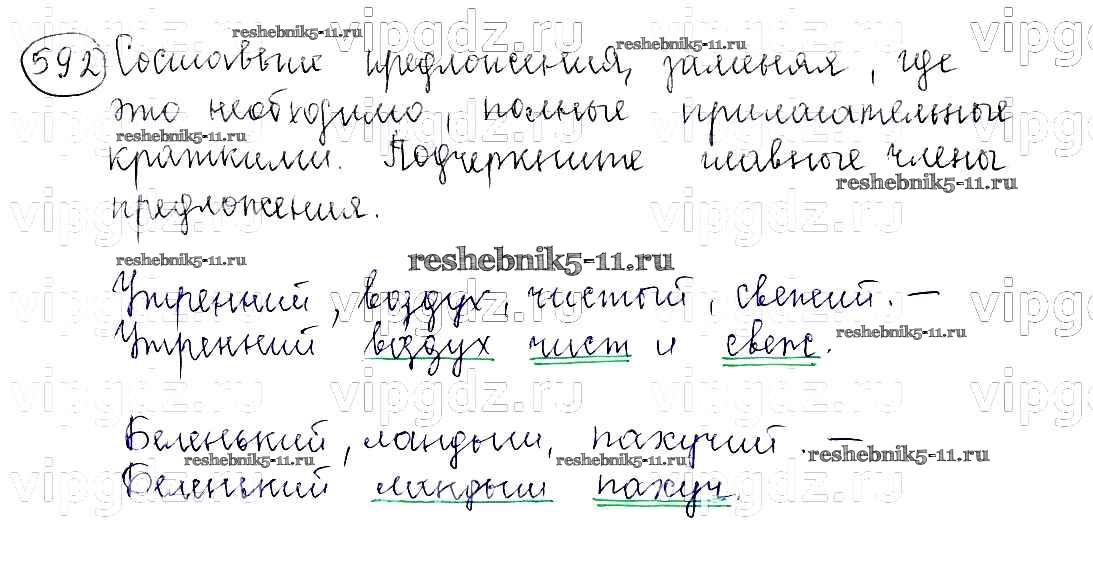 592 Составьте предложения, заменяя, где
это необходимо, полные прилагательные
краткими. Подчеркните главные члены
предложения.
Утренний, воздух, чистый, свежий. —
Утренний воздух чист и свеж.
Беленький, ландыш, пахучий. —
Беленький ландыш пахуч.
reshebnik5-11.ru
vipgdz.ru